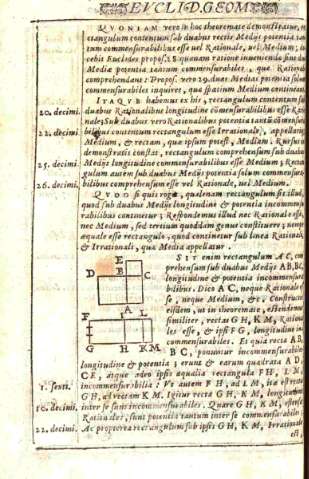 EVCLID. GEOM
QVONIAM vero in hoc theoremate demonstratur,
rectangulum contentum sub duabus rectis Medijs potentia
tum commensurabilibus esse vel Rationale, vel Medium;
cebit Euclides propos. 28 quonam ratione inueniendæ sint
Mediæ potentia tantum commensurabiles, quæ Rationale
comprehendant: Propos. vero 29. duas Medias potentia solum
commensurabiles inquiret, quæ spatium Medium contineant.
ITAQVE habemus ex his, rectangulum contentum sub
20. decimi. duabus Rationalibus longitudine commensurabilibus esse
Sub duabus vero Rationalibus potentia tantum
22. decimi. contentum rectangulum esse Irrationale, appellarique
Medium, & rectam, quæ ipsum potest, Mediam: Rursus
demonstratis constat, rectangulum comprehensum sub duabus
25. decimi. Medijs longitudine commensurabilibus esse Medium;
gulum autem sub duabus Medijs potentia solum
26. decimi. bilibus comprehensum esse vel Rationale, vel Medium.
QVOD si quis roget, qualenam rectangulum sit illud,
quod sub duabus Medijs longitudine & potentia
rabilibus continetur; Respondemus illud nec Rationale esse,
nec Medium, sed tertium quoddam genus constituere;
æquale esse rectangulo, quod continetur sub linea
& Irrationali, quæ Media appellatur.
SIT enim rectangulum AC,
prehensum sub duabus Medijs AB, BC,
longitudine & potentia
bilibus. Dico AC, neque
se, neque Medium, &c.
eisdem, vt in theoremate,
similiter, rectas GH, KM,
les esse, & ipsi FG, longitudine
commensurabiles. Et quia rectæ AB,
BC, ponuntur incommensurabiles
longitudine & potentia; erunt & earum quadrata AD,
CE, atque adeo ipsis æqualia rectangula FH, LM,
1. sexti. incommensurabilia: Vt autem FH, ad LM, ita est recta
GH, ad rectam KM. Igitur rectæ GH, KM, longitudine
10. decimi. inter se sunt incommensurabiles. Quare GH, KM,
Rationales, sunt potentia tantum inter se commensurabiles
22. decimi. Ac propterea rectangulum sub ipsis GH, KM, Irrationale
est,
E
D B C
A
F I L
G H K M